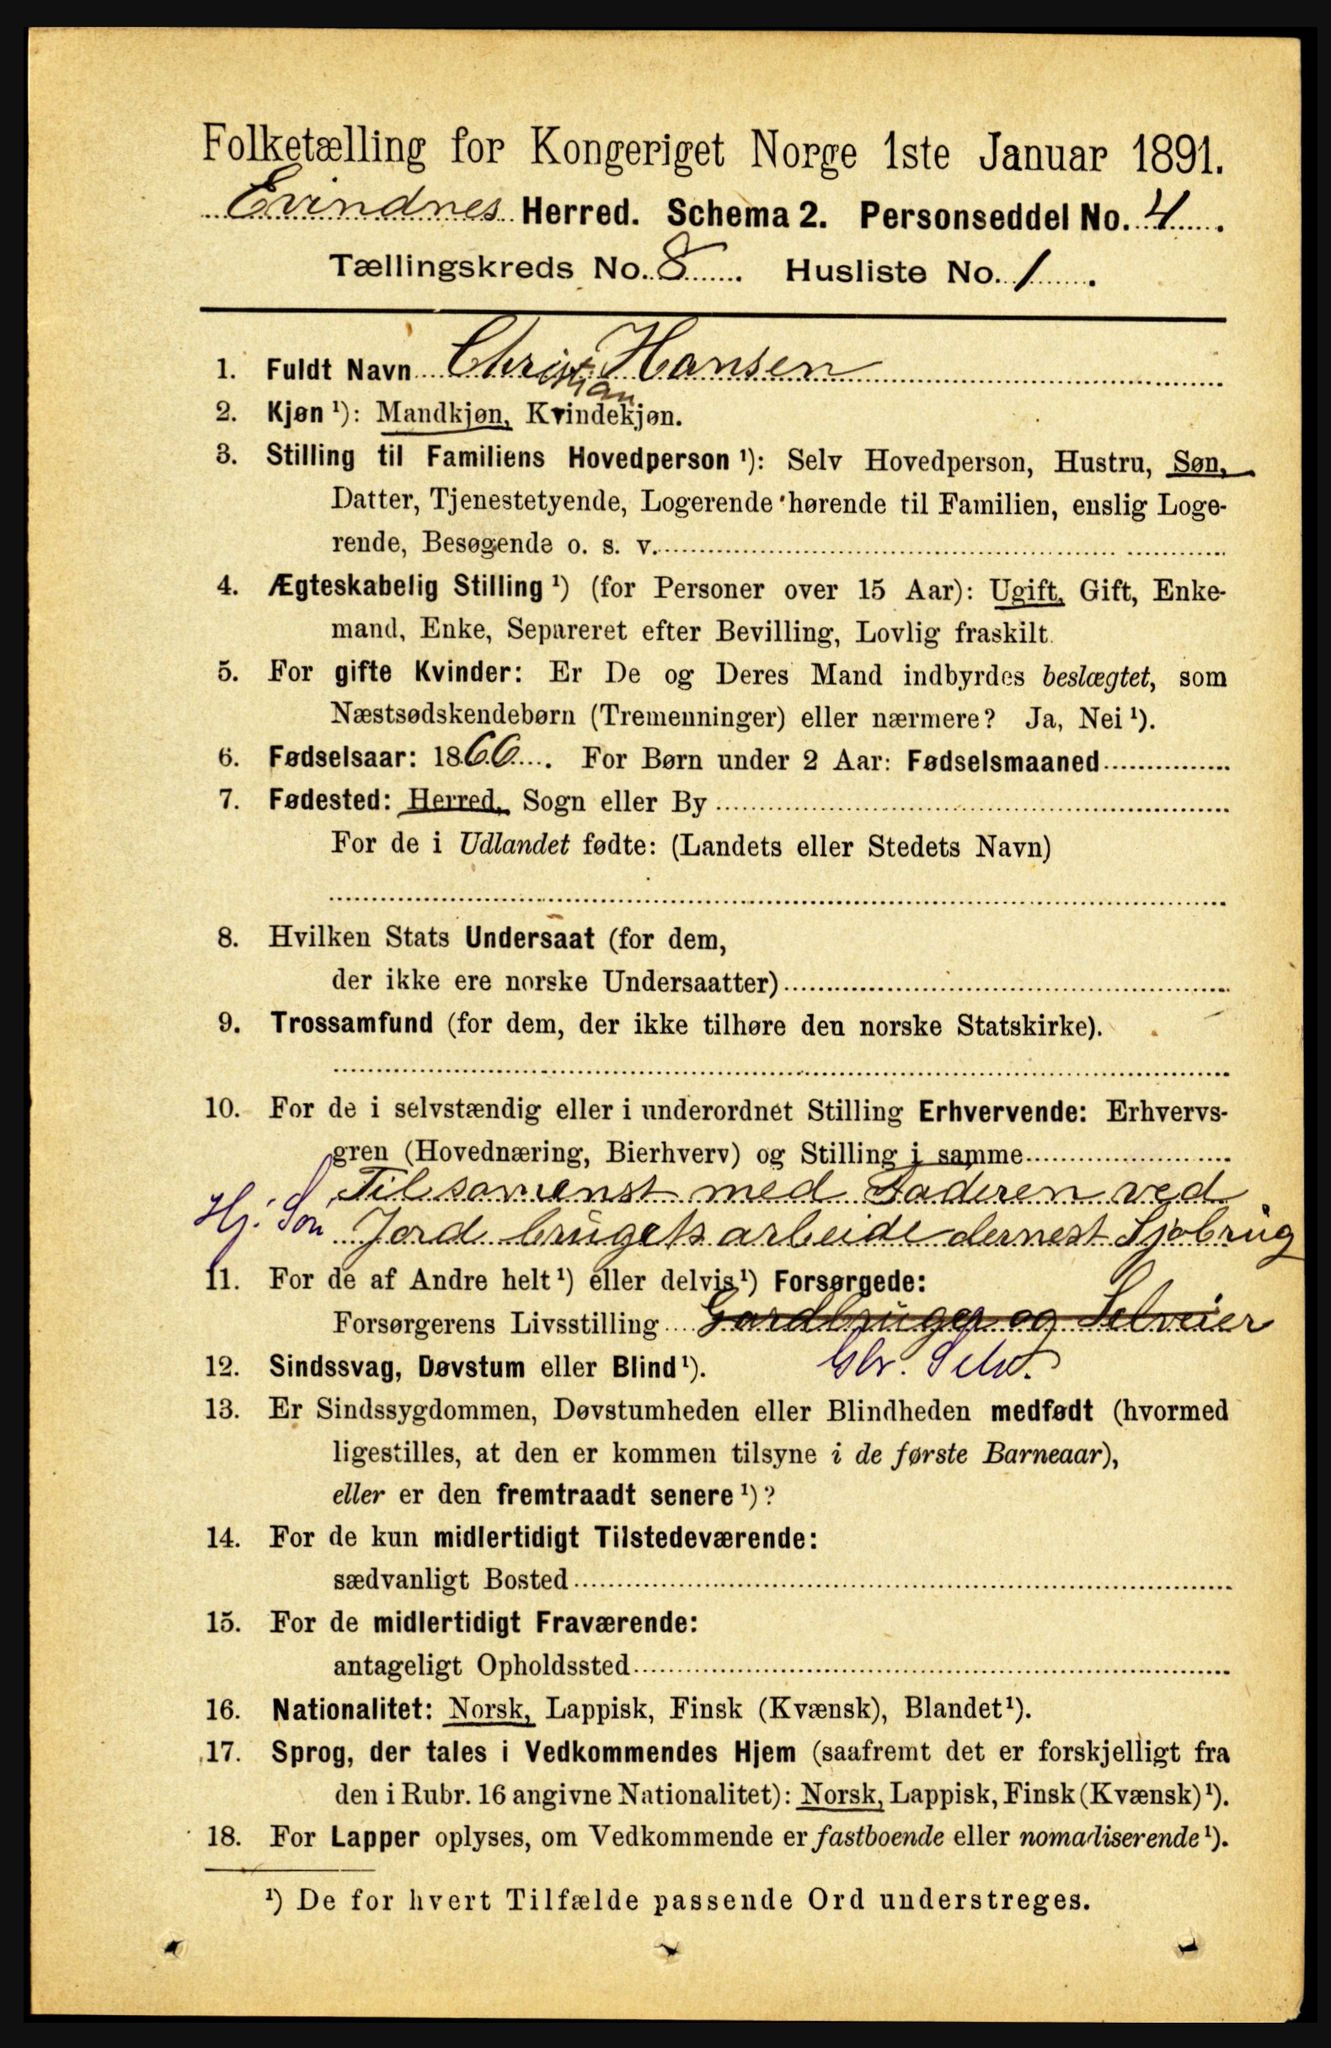 Folketælling for Kongeriget Norge 1ste Januar 1891.
Evindnes Herred. Schema 2. Personseddel No. 4.
Tællingskreds No. 8. Husliste No. 1.
1. Fuldt Navn Christian Hansen
2. Kjøn ¹): Mandkjøn, Kvindekjøn.
3. Stilling til Familiens Hovedperson ¹): Selv Hovedperson, Hustru, Søn,
Datter, Tjenestetyende, Logerende hørende til Familien, enslig Loge-
rende, Besøgende o. s. v.
4. Ægteskabelig Stilling ¹) (for Personer over 15 Aar): Ugift, Gift, Enke-
mand, Enke, Separeret efter Bevilling, Lovlig fraskilt.
5. For gifte Kvinder: Er De og Deres Mand indbyrdes beslægtet, som
Næstsødskendebørn (Tremenninger) eller nærmere? Ja, Nei ¹).
6. Fødselsaar: 1866. For Børn under 2 Aar: Fødselsmaaned
7. Fødested: Herred, Sogn eller By
For de i Udlandet fødte: (Landets eller Stedets Navn)
8. Hvilken Stats Undersaat (for dem,
der ikke ere norske Undersaatter)
9. Trossamfund (for dem, der ikke tilhøre den norske Statskirke).
10. For de i selvstændig eller i underordnet Stilling Erhvervende: Erhvervs-
gren (Hovednæring, Bierhverv) og Stilling i samme
Tilsamenst med Faderen ved
Hj. Søn Jord brugets arbeide dernest Sjøbrug
11. For de af Andre helt ¹) eller delvis ¹) Forsørgede:
Forsørgerens Livsstilling Gardbruger og Selveier
Gbr. Selv.
12. Sindssvag, Døvstum eller Blind ¹).
13. Er Sindssygdommen, Døvstumheden eller Blindheden medfødt (hvormed
ligestilles, at den er kommen tilsyne i de første Barneaar),
eller er den fremtraadt senere ¹)?
14. For de kun midlertidigt Tilstedeværende:
sædvanligt Bosted
15. For de midlertidigt Fraværende:
antageligt Opholdssted
16. Nationalitet: Norsk, Lappisk, Finsk (Kvænsk), Blandet ¹).
17. Sprog, der tales i Vedkommendes Hjem (saafremt det er forskjelligt fra
den i Rubr. 16 angivne Nationalitet): Norsk, Lappisk, Finsk (Kvænsk) ¹).
18. For Lapper oplyses, om Vedkommende er fastboende eller nomadiserende ¹).
¹) De for hvert Tilfælde passende Ord understreges.